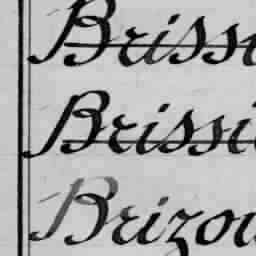 Briss
Brissi
Brizou